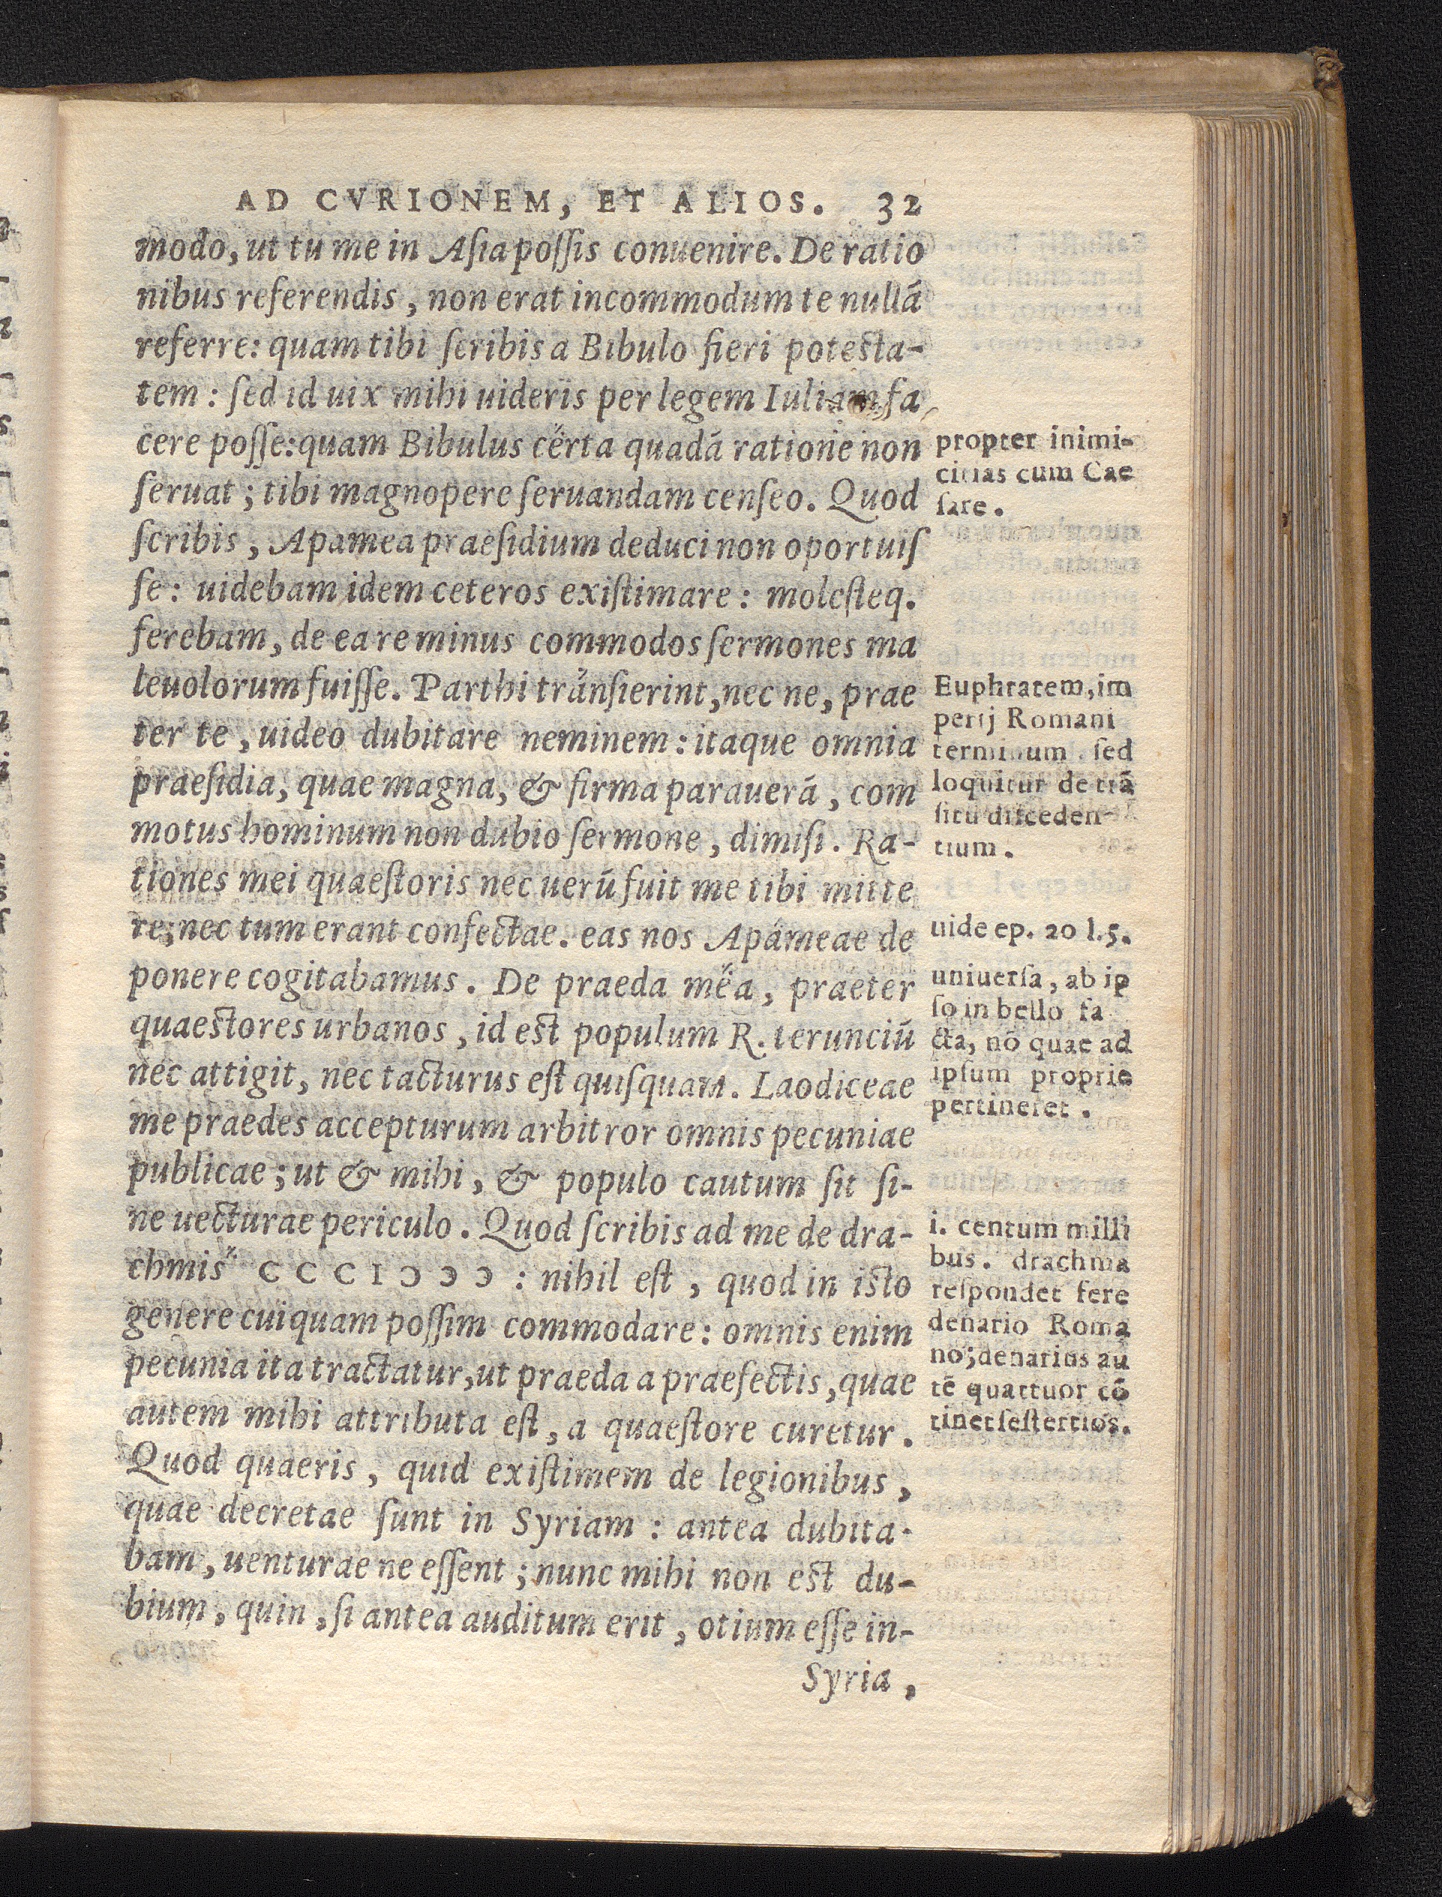 AD CVRIONEM, ET ALIOS. 32
modo, ut tu me in Asia possis conuenire. De ratio
nibus referendis, non erat incommodum te nullã
referre: quam tibi scribis a Bibulo fieri potesta-
tem: sed id uix mihi uideris per legem Iuliam fa
cere posse: quam Bibulus certa quadã ratione non
seruat; tibi magnopere seruandam censeo. Quod
scribis, Apamea praesidium deduci non oportuis
se: uidebam idem ceteros existimare: molesteq.
ferebam, de ea re minus commodos sermones ma
leuolorum fuisse. Parthi transierint, nec ne, prae
ter te, uideo dubitare neminem: itaque omnia
praesidia, quae magna, & firma paraueră, com
motus hominum non dubio sermone, dimisi. Ra-
tiones mei quaestoris nec uerũ fuit me tibi mitte
re; nec tum erant confectae. eas nos Apameae de
ponere cogitabamus. De praeda mea, praeter
quaestores urbanos, id est populum R. terunciũ
nec attigit, nec tacturus est quisquam. Laodiceae
me praedes accepturum arbitror omnis pecuniae
publicae; ut & mihi, & populo cautum sit si-
ne uecturae periculo. Quod scribis ad me de dra-
chmis" C C C I Ɔ Ɔ Ɔ: nihil est, quod in isto
genere cuiquam possim commodare: omnis enim
pecunia ita tractatur, ut praeda a praefectis, quae
autem mihi attributa est, a quaestore curetur.
Quod quaeris, quid existimem de legionibus,
quae decretae sunt in Syriam: antea dubita-
bam, uenturae ne essent; nunc mihi non est du-
bium, quin, si antea auditum erit, otium esse in-
Syria,
propter inimi-
citias cum Cae
sare.
Euphratem, im
perij Romani
terminum. sed
loquitur de trã
situ disceden-
tium.
uide ep. 20 l. 5.
uniuersa, ab ip
so in bello fa
cta, nõ quae ad
ipsum proprie
pertineret.
i. centum milli
bus. drachma
respondet fere
denario Roma
no; denarius au
tẽ quattuor cõ
tinet sestertios.